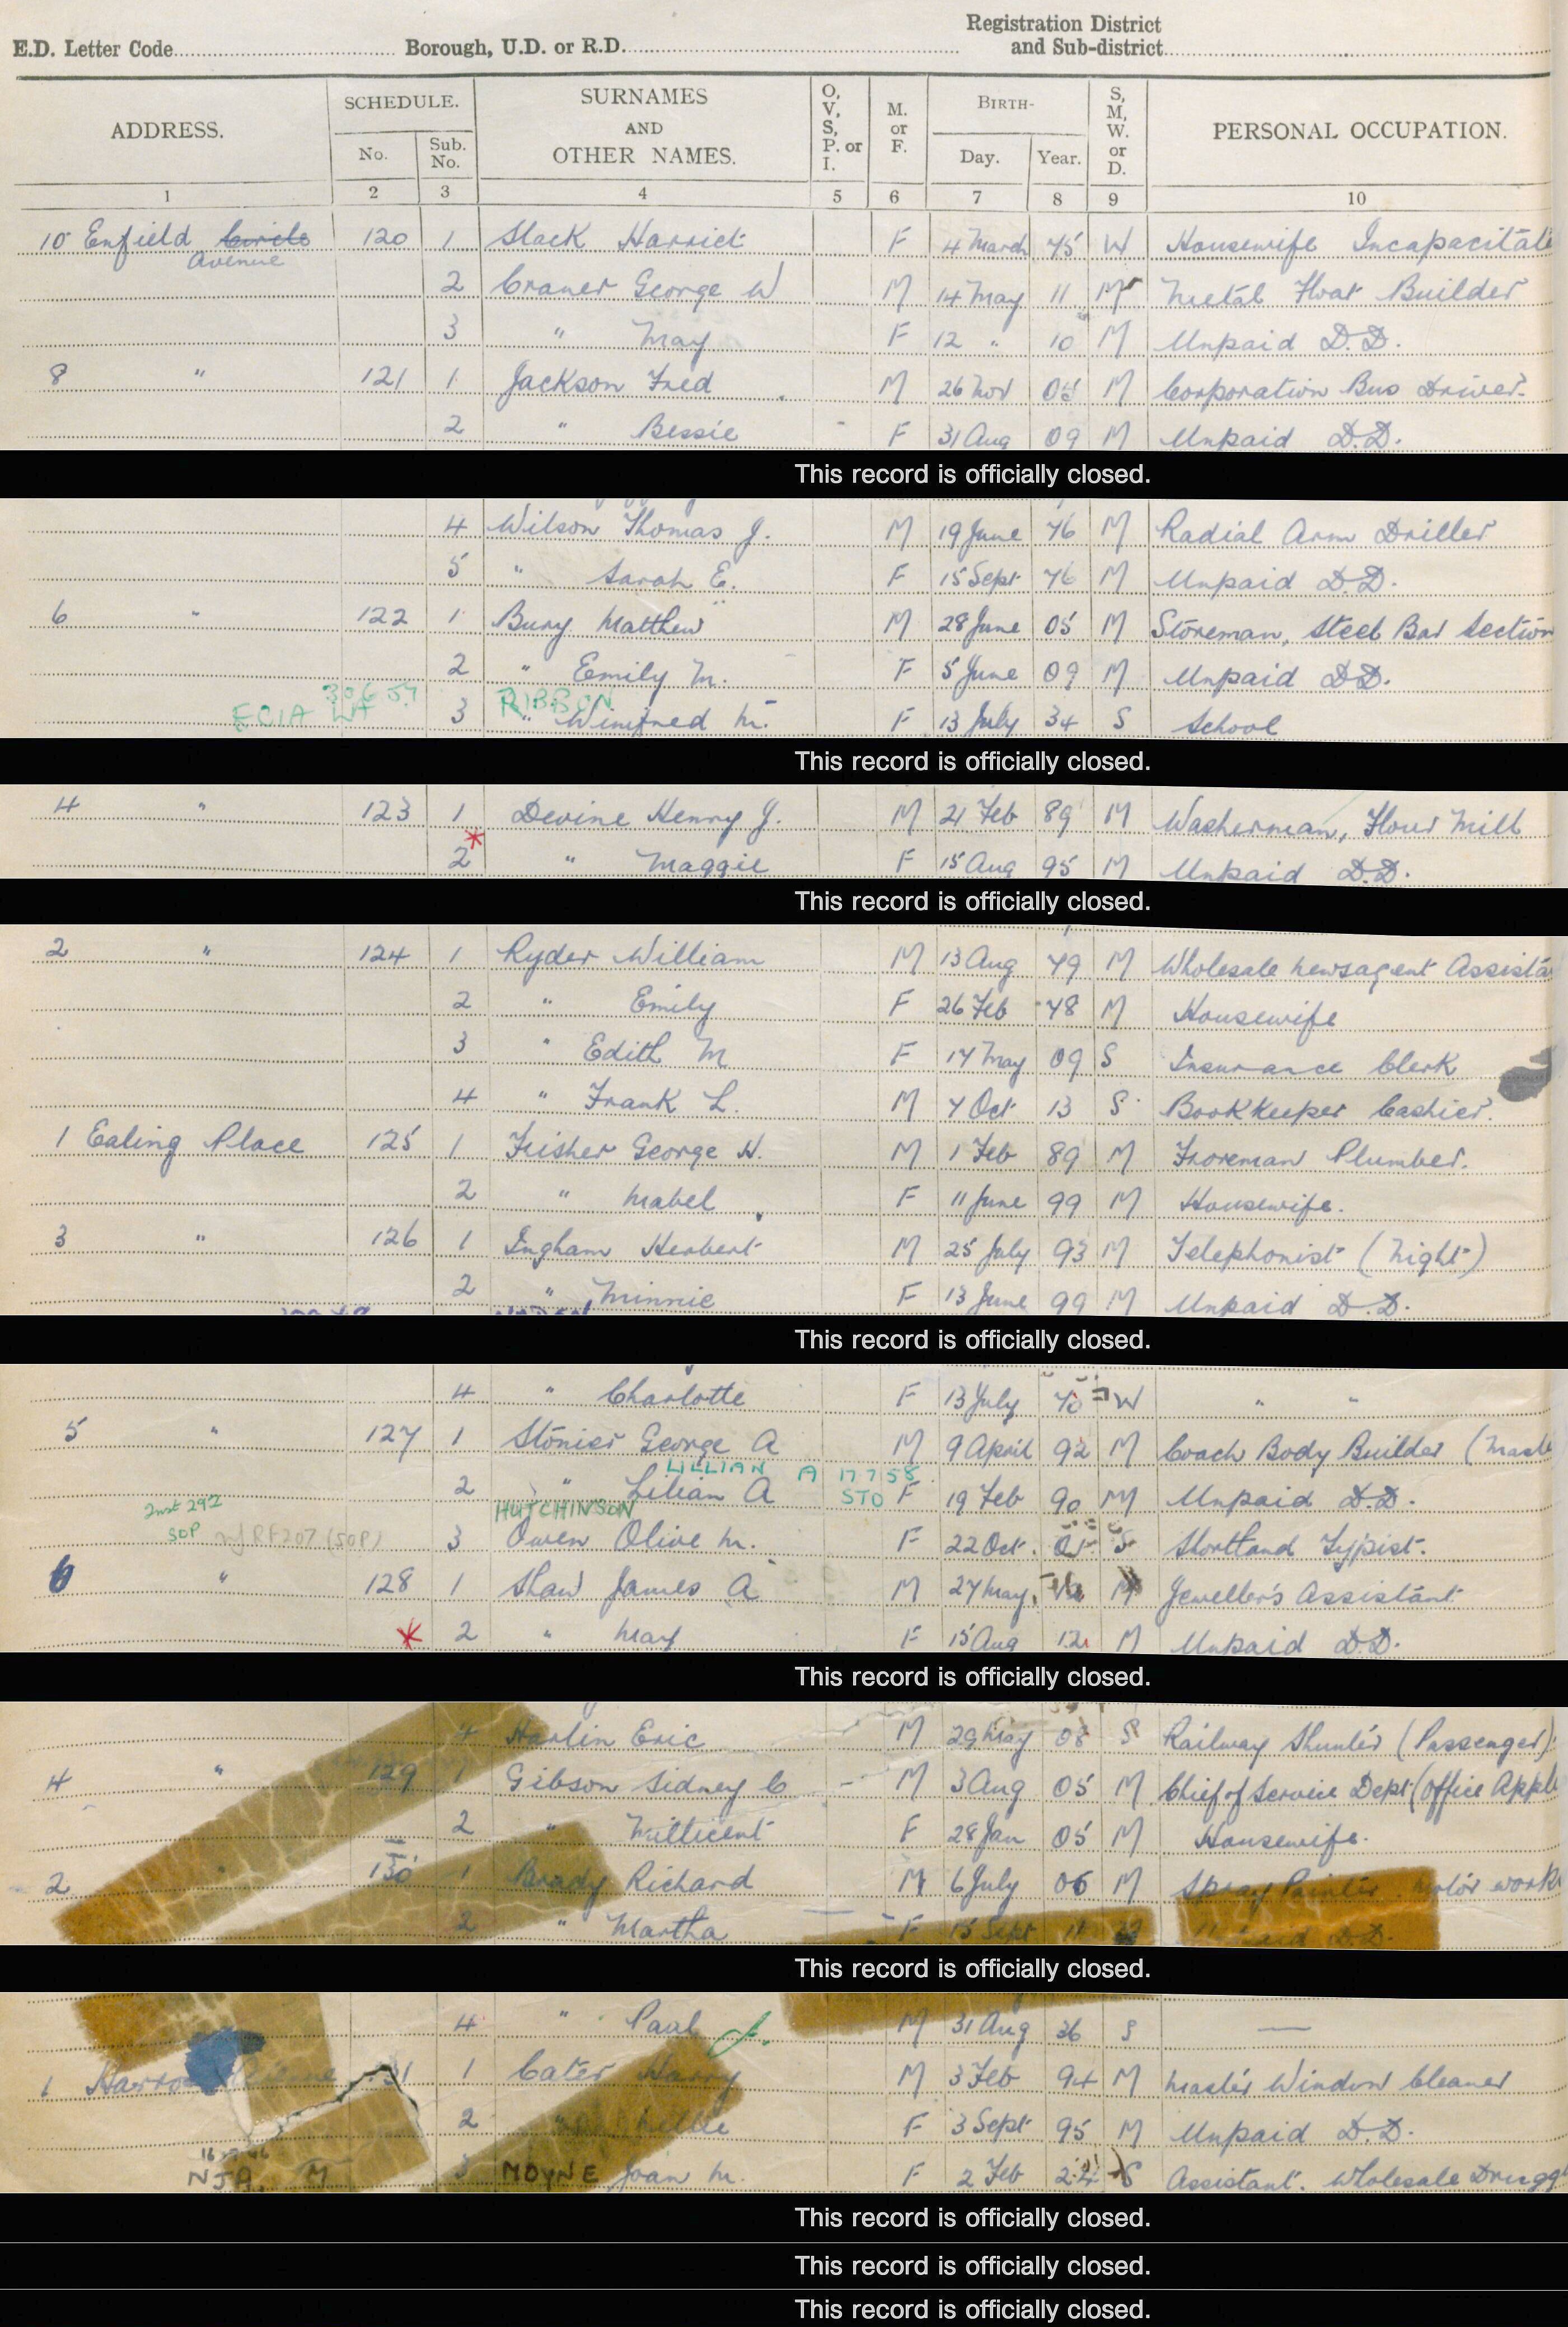 Registration District
E.D. Letter Code Borough, U.D. or R.D. and Sub-district
ADDRESS. SCHEDULE. SURNAMES AND OTHER NAMES. O, V, S, P. or I. M. or F. BIRTH- S, M, W. or D. PERSONAL OCCUPATION.
No. Sub. No. Day. Year.
1 2 3 4 5 6 7 8 9 10
10 Enfield Circle 120 1 Slack Harriet F 4 March 75 W Housewife Incapacitate
Avenue
2 Craner George W M 14 May 11 M Metal Float Builder
3 " May F 12 " 10 M Unpaid D.D.
8 " 121 1 Jackson Fred M 26 Nov 05 M Corporation Bus Driver.
2 " Bessie F 31 Aug 09 M Unpaid D.D.
This record is officially closed.
4 Wilson Thomas J. M 19 June 76 M Radial Arm Driller
5 " Sarah E. F 15 Sept 76 M Unpaid D.D.
6 " 122 1 Bury Matthew M 28 June 05 M Storeman, Steel Bar Section
2 " Emily M. F 5 June 09 M Unpaid D.D.
30 6 57 RIBSON
3 " Winifred M. F 13 July 34 S School
This record is officially closed.
4 " 123 1 Devine Henry J. M 21 Feb 89 M Washerman, Flour Mill
2 " Maggie F 15 Aug 95 M Unpaid D.D.
This record is officially closed.
2 " 124 1 Ryder William M 13 Aug 79 M Wholesale Newsagent Assista
2 " Emily F 26 Feb 78 M Housewife
3 " Edith M F 17 May 09 S Insurance Clerk
4 " Frank L. M 7 Oct 13 S Bookkeeper Cashier.
1 Ealing Place 125 1 Frisher George H. M 1 Feb 89 M Foreman Plumber.
2 " Mabel F 11 June 99 M Housewife.
3 " 126 1 Ingham Herbert M 25 July 93 M Telephonist (Night)
2 " Minnie F 13 June 99 M Unpaid D.D.
This record is officially closed.
4 " Charlotte F 13 July 70 W " "
5 " 127 1 Stonier George A M 9 April 92 M Coach Body Builder (Maste
LILLIAN A 17 7 58
2 " Lilian A STO F 19 Feb 90 M Unpaid D.D.
HUTCHINSON
SOP RF207 (SOP) 3 Owen Olive M. F 22 Oct. S Shorthand Typist.
6 " 128 1 Shaw James A M 27 May M Jeweller's Assistant
2 " May F 15 Aug 12 M Unpaid D.D.
This record is officially closed.
4 Harlin Eric M 29 May 08 S Railway Shunter (Passenger)
4 " 129 1 Gibson Sidney C M 3 Aug 05 M Chief of Service Dept (Office Appli
2 " Millicent F 28 Jan 05 M Housewife.
2 " 130 1 Brady Richard M 6 July 06 M Spray Painter. Motor works
2 " Martha F 15 Sept 11 Unpaid D.D.
This record is officially closed.
4 " Paul M 31 Aug 36 S —
1 1 Cater Harry M 3 Feb 94 M Master Window Cleaner
2 " F 3 Sept 95 M Unpaid D.D.
NJA. M 3 MOYNE Joan M. F 2 Feb 24 S Assistant. Wholesale Drugg
This record is officially closed.
This record is officially closed.
This record is officially closed.